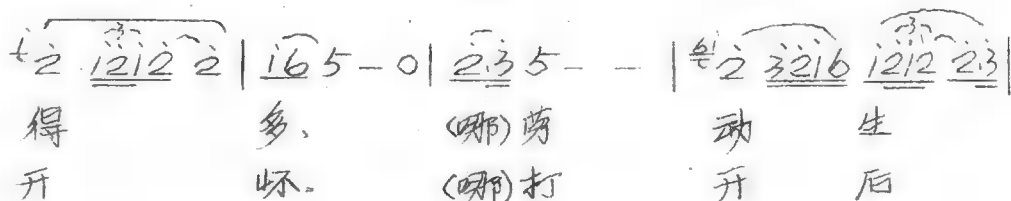 i 2 i212 2 | i6 5 - 0 | 2.3 5 - - | 6i 2 3216 i212 2.3 |
得 多、 (哪)劳 动 生
开 怀。 (哪)打 开 后